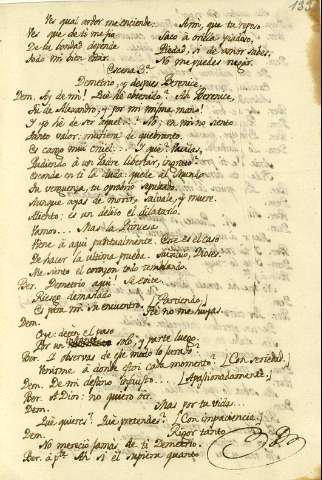 135
Ves qual ardor me enciende
Ves que de ti me fio
De tu bondad depende
Todo mi bien
Ami, que tu
Saco à
Piedad, si de amor sabes,
No me puedes negar.
Escena 2.ª
Demetrio, y despues Berenice.
Dem. Ay de mi! Que he obtenido? Ah Berenice,
Tú de Alexandro, y por mi misma mano!
Y yo hé de ser aquel? No; en mi no siento
tanto valor, muriera de quebranto.
Es cargo muy cruel... Y que? Vacilas,
Pudiendo à un Padre libertar, ingrato?
Esconde en ti la duda: quede al Mundo
Tu verguenza, tu oprobio sepultado.
Aunque ayas de morir, salvale, y muere.
Aliento: es un delito el dilatarlo.
Vamos... Mas la Princesa
Viene à aqui puntualmente. Este es el caso
De hacer la ultima prueba. Asistidme, Dioses.
Me siento el corazon todo temblando.
Ber. Demetrio aqui! Se evite.
Riesgo demasiado
Es para mi su encuentro. [Partiendo.]
Dem. Ah no me huyas.
Oye: deten el paso
Por un solo, y parte luego.
Ber. I observas de ese modo lo jurado?
Venirme à donde estoi cada momento? [Con seriedad.]
Dem. De mi destino infausto... [Apasionadamente.]
Ber. A Dios: no quiero oir.
Dem. Mas por tu vida...
Ber. Que quieres? Que pretendes? [Con impaciencia.]
Dem. Rigor tanto
No mereció jamas de ti Demetrio.
Ber. à p.te Ah si él supiera quanto